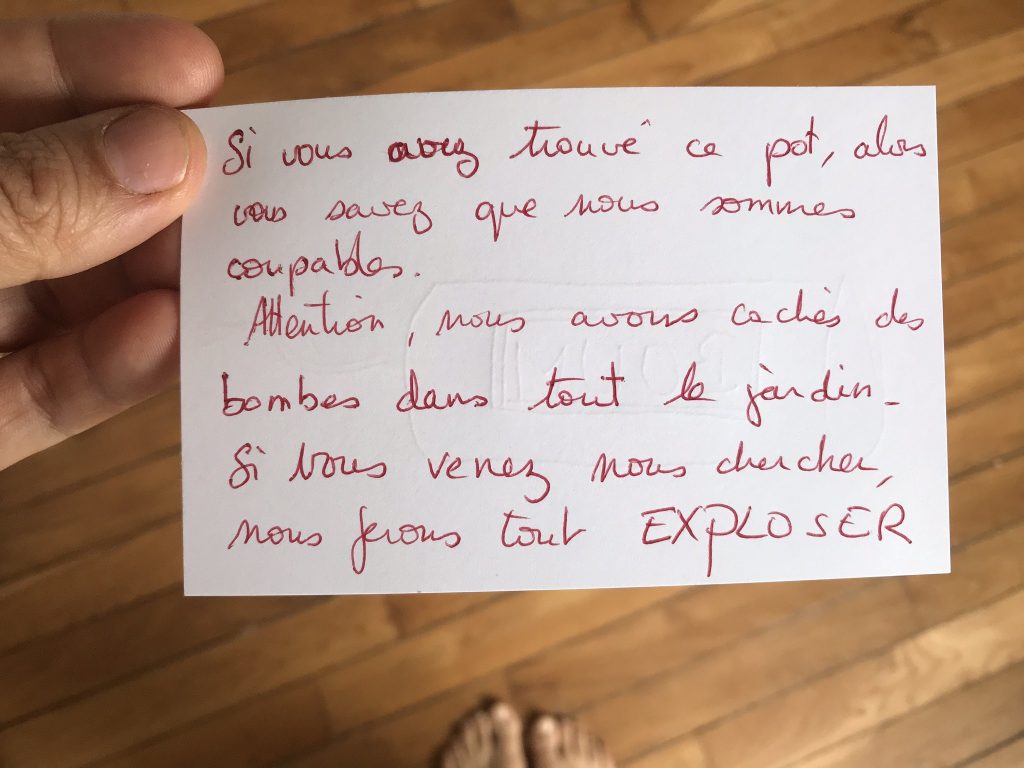 Si vous avez trouvé ce pot, alors
vous savez que nous sommes
coupables.
Attention, nous avons cachés des
bombes dans tout le jardin.
Si vous venez nous chercher,
nous ferons tout EXPLOSER